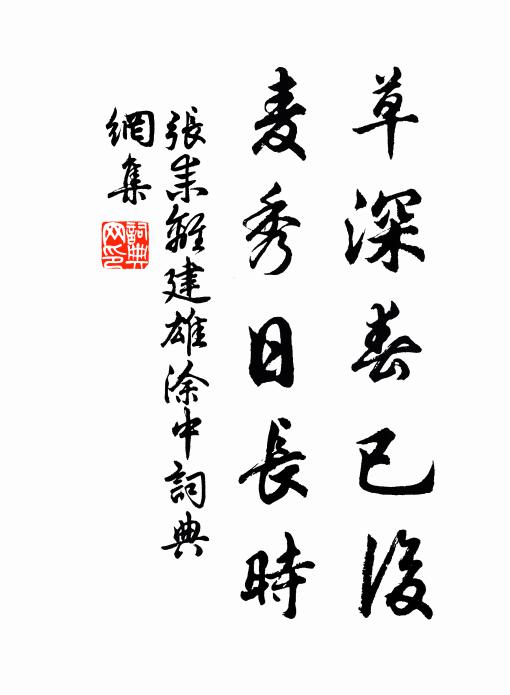 草深春已後
麦秀日長時
張耒離建雄涂中詞典
網集
詞典
网印